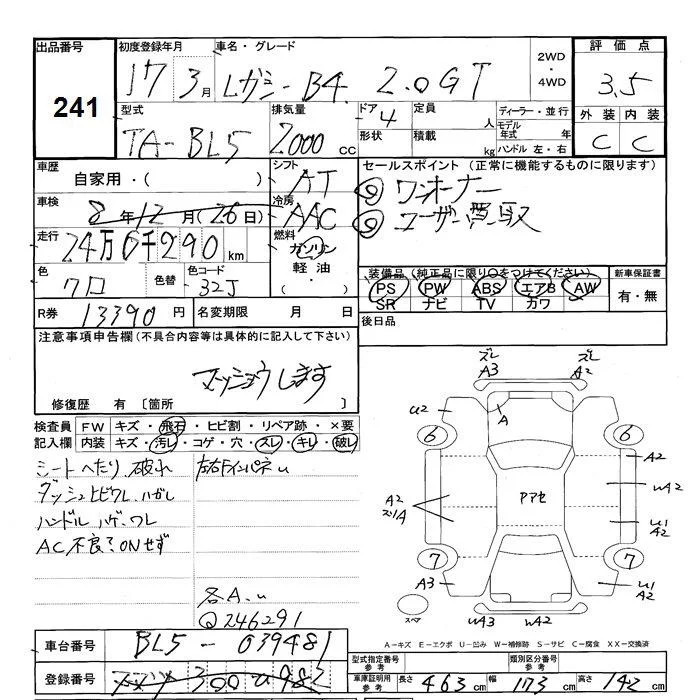 出品番号 初度登録年月 車名・グレード 2WD・4WD 評価点
241 17 3月 レガシーB4 2.0GT 3.5
型式 排気量 ドア 4 定員 人 ディーラー・並行 外装 内装
TA-BL5 2000cc 形状 積載 kg モデル年式 年 ハンドル 左・右 C C
車歴 シフト セールスポイント (正常に機能するものに限ります)
自家用・( ) AT ① ワンオーナー
車検 冷房 ② ユーザー買取
8年12月(26日) AAC
走行 燃料
24万6千290km ガソリン
色 色替 色コード 軽油・ 装備品 (純正品に限り○をつけてください) 新車保証書
クロ 32J ( ) PS PW ABS エアB AW 有・無
SR ナビ TV カワ
R券 13390円 名変期限 月 日 後日品
注意事項申告欄 (不具合内容等は具体的に記入して下さい)
マッショウします
修復歴 有 〔箇所 〕
検査員 FW キズ・飛石・ヒビ割・リペア跡・×要
記入欄 内装 キズ・汚レ・コゲ・穴・スレ・キレ・破レ
シートヘたり、破れ 左右ドインパネu
ダッシュヒビワレ、ハガレ
ハンドルハゲ、ワレ
AC不良?ONせず
各A、u
Q246291
ズレ A3 ズレ A2
u2 A
6 6
A2
A2 ズリA アアセ wA2
u1 A2
7 7
A3 u1 A2
スペア wA3 wA2
A-キズ E-エクボ U-凹み W-補修跡 S-サビ C-腐食 XX-交換済
車台番号 BL5-039481 型式指定番号 参考 類別区分番号 参考
登録番号 車庫証明用 参考 長さ 463cm 幅 173cm 高さ 142cm